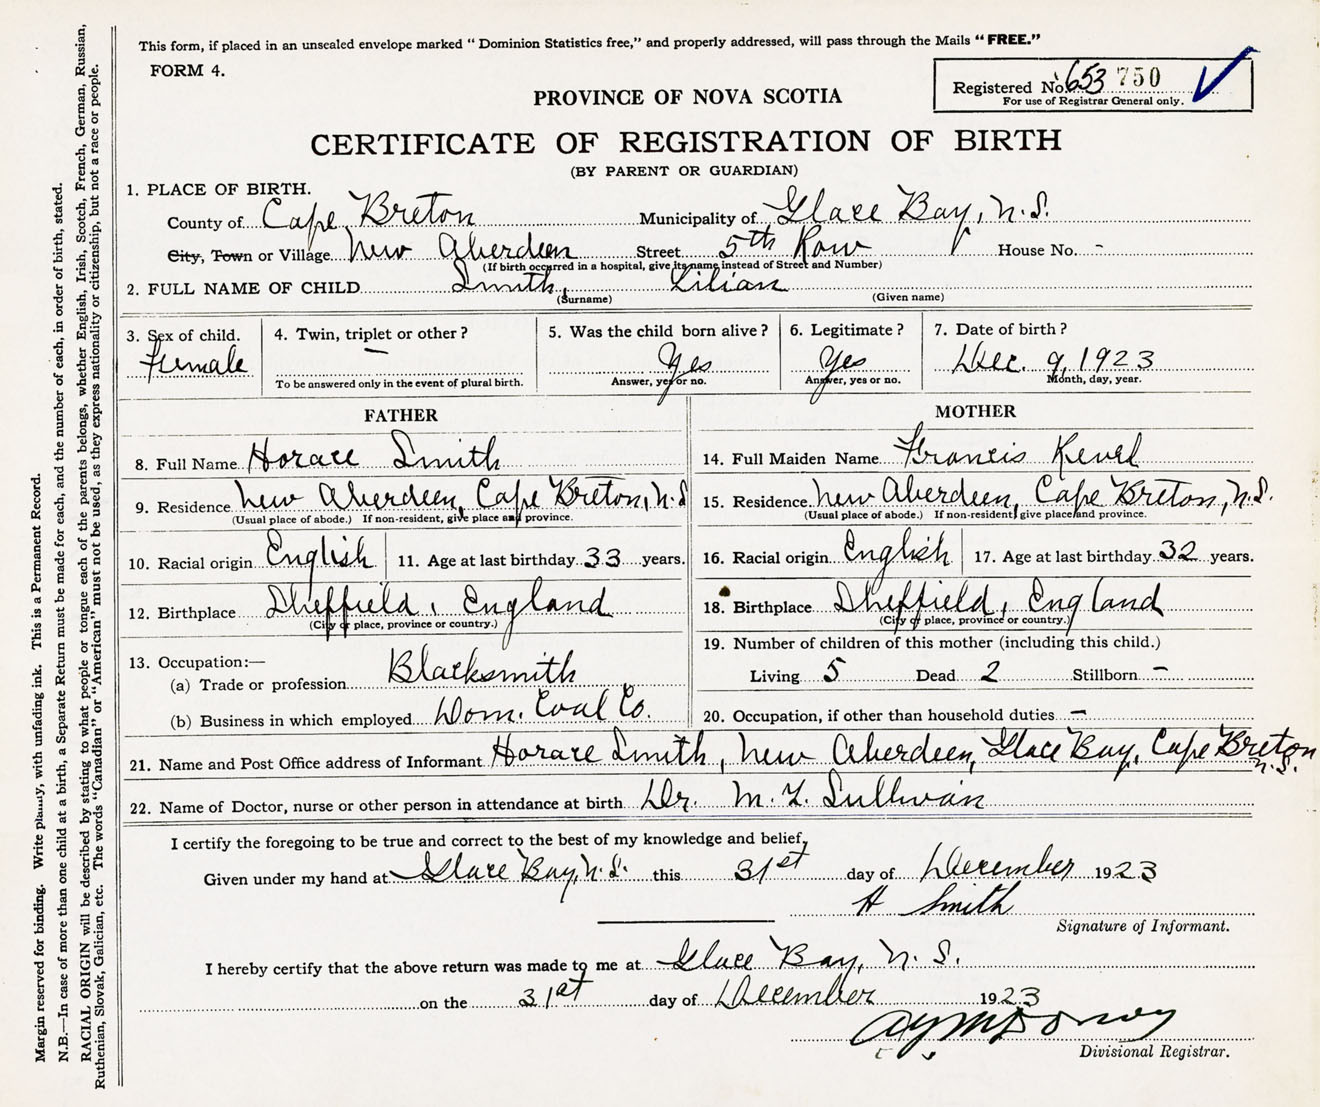 This form, if placed in an unsealed envelope marked “ Dominion Statistics free,” and properly addressed, will pass through the Mails “ FREE.”
FORM 4.
Registered No. 653 750
For use of Registrar General only.
PROVINCE OF NOVA SCOTIA
CERTIFICATE OF REGISTRATION OF BIRTH
(BY PARENT OR GUARDIAN)
1. PLACE OF BIRTH.
County of Cape Breton Municipality of Glace Bay, N.S.
City, Town or Village New Aberdeen Street 5th Row House No. -
(If birth occurred in a hospital, give its name instead of Street and Number)
2. FULL NAME OF CHILD Smith, Lilian
(Surname) (Given name)
3. Sex of child. 4. Twin, triplet or other ? 5. Was the child born alive ? 6. Legitimate ? 7. Date of birth ?
Female — Yes Yes Dec. 9, 1923
To be answered only in the event of plural birth. Answer, yes or no. Answer, yes or no. Month, day, year.
FATHER MOTHER
8. Full Name Horace Smith 14. Full Maiden Name Francis
9. Residence New Aberdeen, Cape Breton, N.S 15. Residence New Aberdeen, Cape Breton, N.S.
(Usual place of abode.) If non-resident, give place and province. (Usual place of abode.) If non-resident, give place and province.
10. Racial origin English 11. Age at last birthday 33 years. 16. Racial origin English 17. Age at last birthday 32 years.
12. Birthplace Sheffield, England 18. Birthplace Sheffield, England
(City or place, province or country.) (City or place, province or country.)
13. Occupation:— 19. Number of children of this mother (including this child.)
(a) Trade or profession Blacksmith Living 5 Dead 2 Stillborn —
(b) Business in which employed Dom. Coal Co. 20. Occupation, if other than household duties —
21. Name and Post Office address of Informant Horace Smith, New Aberdeen, Glace Bay, Cape Breton
N.S.
22. Name of Doctor, nurse or other person in attendance at birth Dr. M. T. Sullivan
I certify the foregoing to be true and correct to the best of my knowledge and belief,
Given under my hand at Glace Bay, N.S. this 31st day of December 1923
H Smith
Signature of Informant.
I hereby certify that the above return was made to me at Glace Bay, N. S.
on the 31st day of December 1923
Divisional Registrar.
Margin reserved for binding. Write plainly, with unfading ink. This is a Permanent Record.
N.B.—In case of more than one child at a birth, a Separate Return must be made for each, and the number of each, in order of birth, stated.
RACIAL ORIGIN will be described by stating to what people or tongue each of the parents belongs, whether English, Irish, Scotch, French, German, Russian,
Ruthenian, Slovak, Galician, etc. The words “Canadian” or “American” must not be used, as they express nationality or citizenship, but not a race or people.